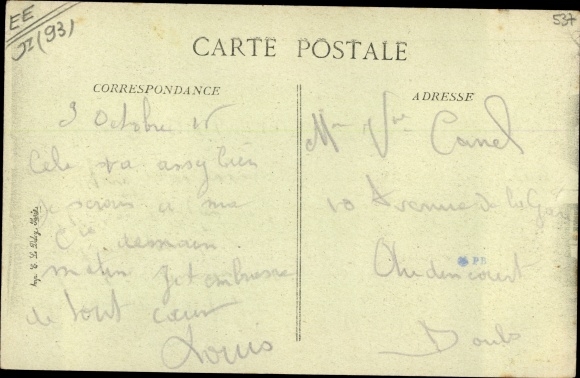 EE
II (93)
537
CARTE POSTALE
CORRESPONDANCE
ADRESSE
3 Octobre 15
Cela va assez bien
Je serai à ma
Cie demain
matin Je t embrasse
de tout cœur
Louis
Mme Vve Canel
10 Avenue de la Gare
Audincourt
Doubs
Imp. E. Le Deley, Paris